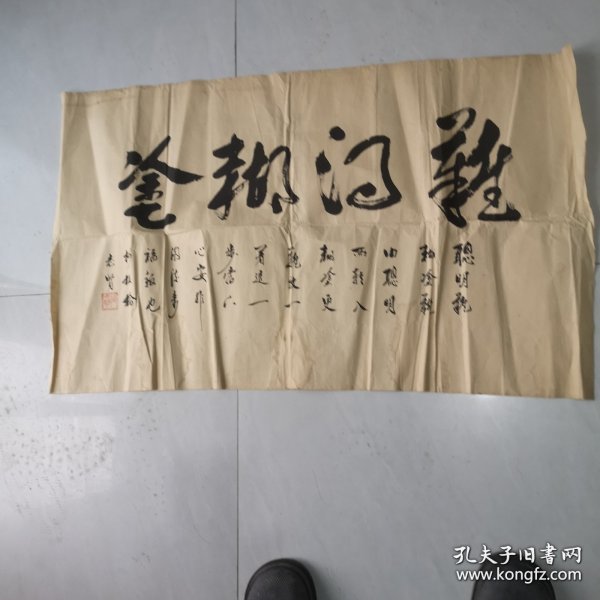 難得糊塗
聰明難
糊塗難
由聰明
而轉入
糊塗更
難放一
著退一
步當下
心安非
圖後来
福報也
孔夫子旧书网
www.kongfz.com